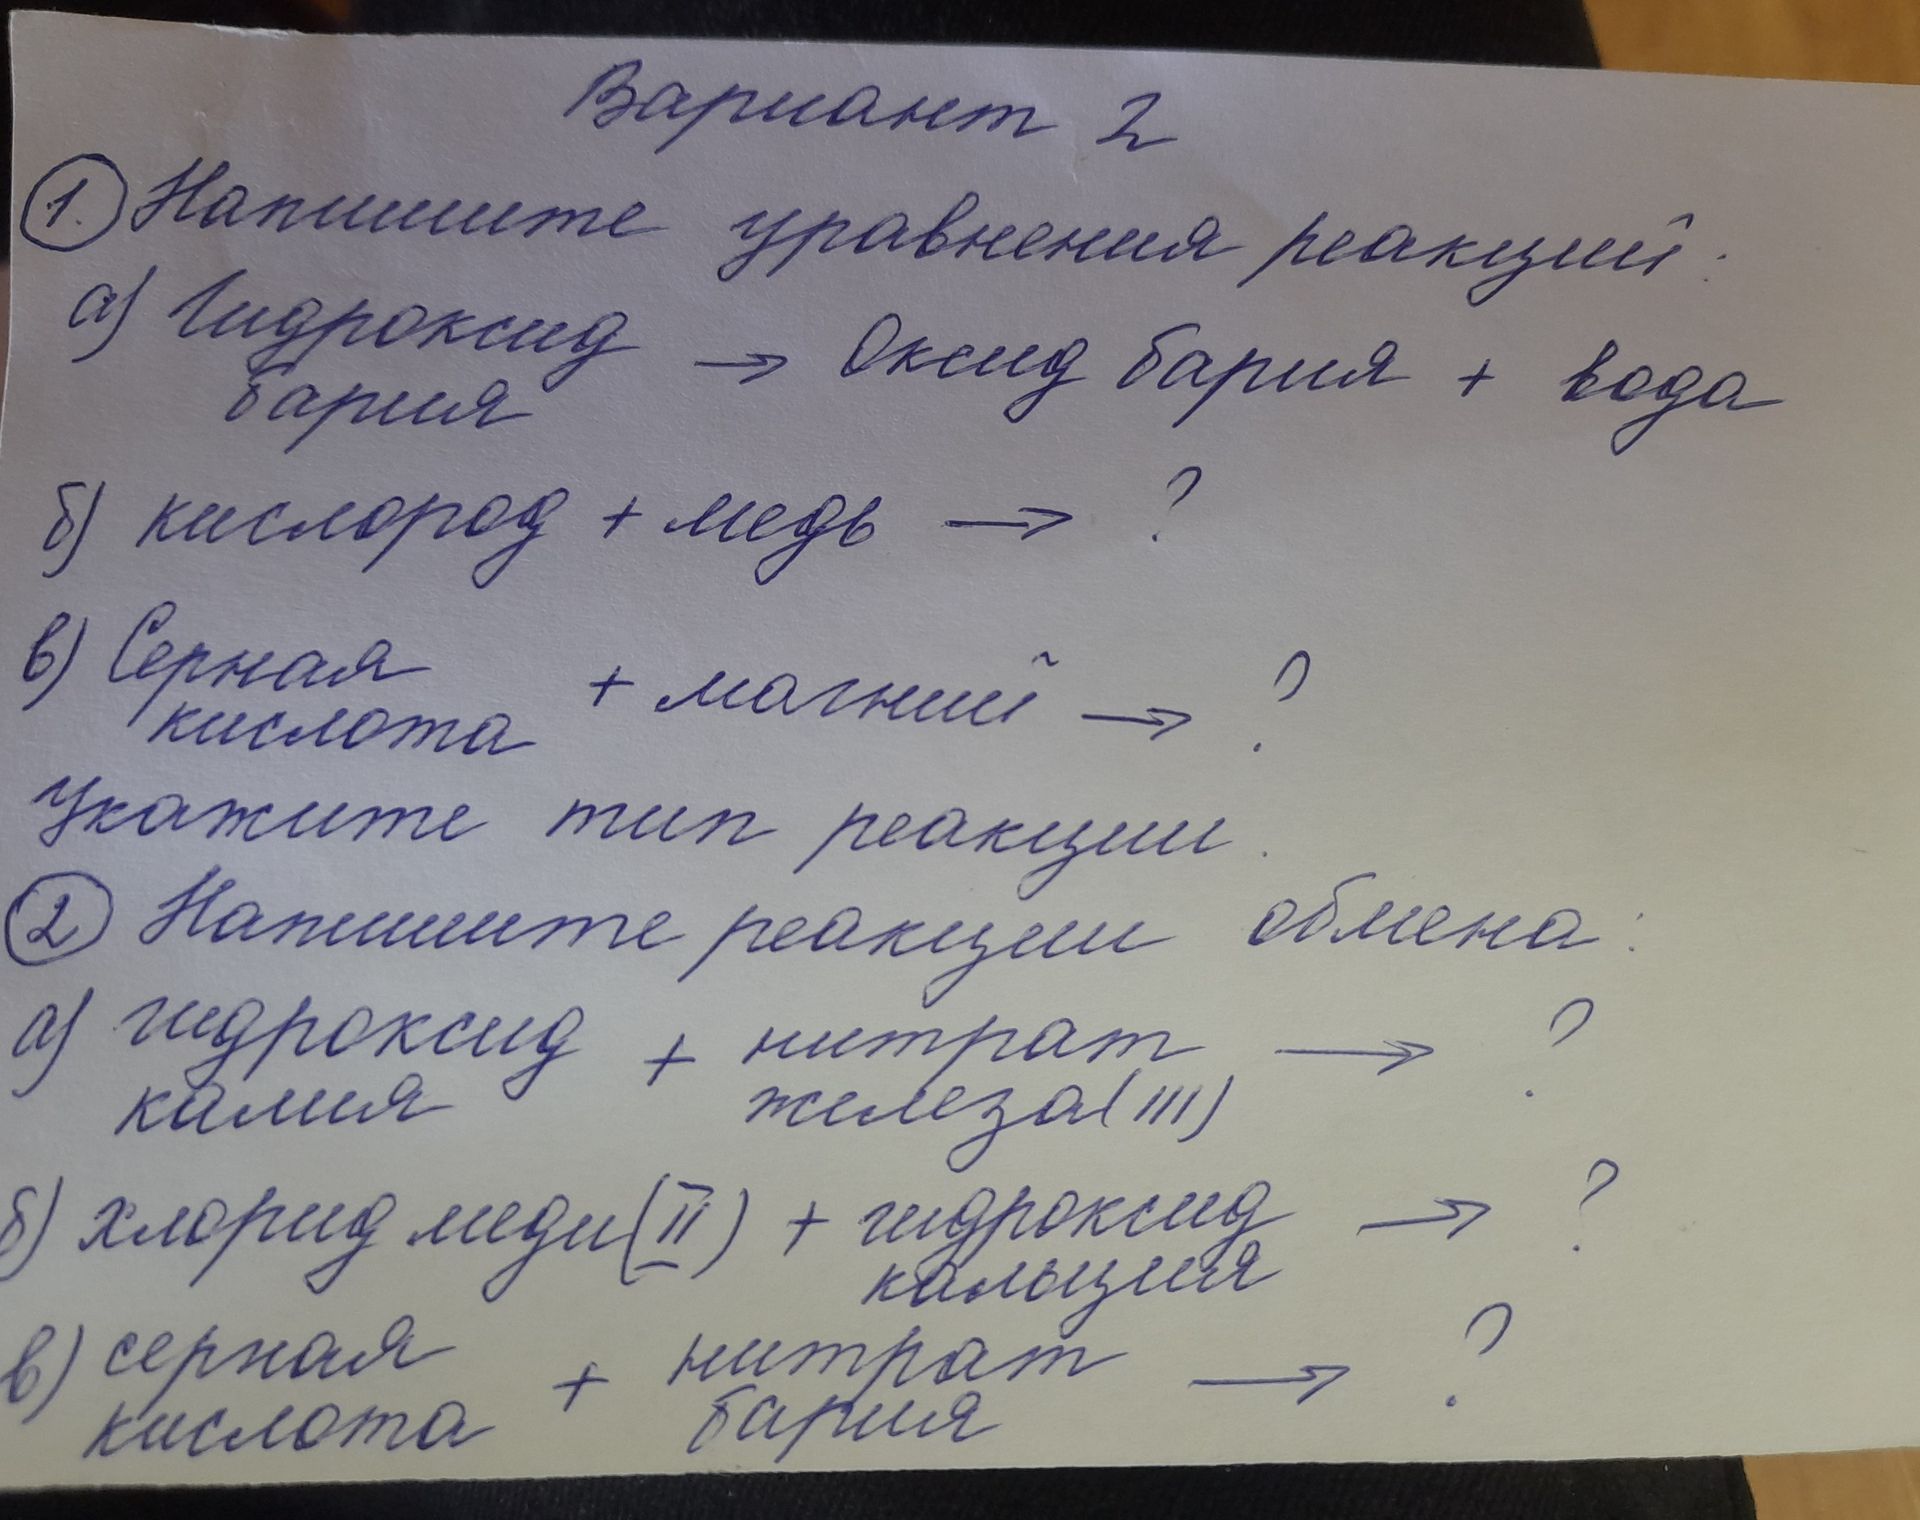 Вариант 2
1. Напишите уравнения реакций:
а) Гидроксид бария → Оксид бария + вода
б) кислород + медь → ?
в) Серная кислота + магний → ?
Укажите тип реакции.
2 Напишите реакции обмена:
а) гидроксид калия + нитрат железа (III) → ?
б) хлорид меди (II) + гидроксид кальция → ?
в) серная кислота + нитрат бария → ?